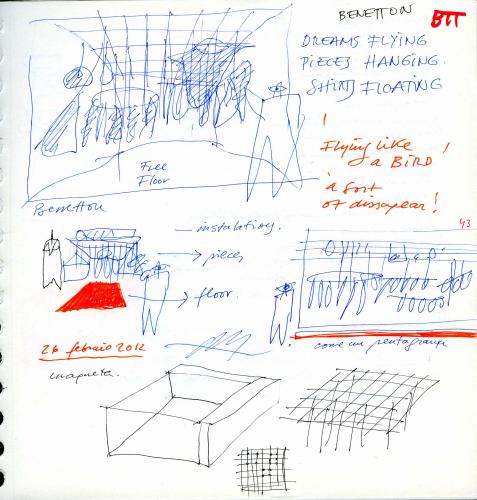 BENETTON
BTT
DREAMS FLYING
PIECES HANGING.
SHIRTS FLOATING
!
Flying like
a BiRD !
a sort
of dissapear!
Free
Floor
Benetton
— instalation.
pieces
floor.
43
26 febraio 2012
come un pentagrama
maqueta.